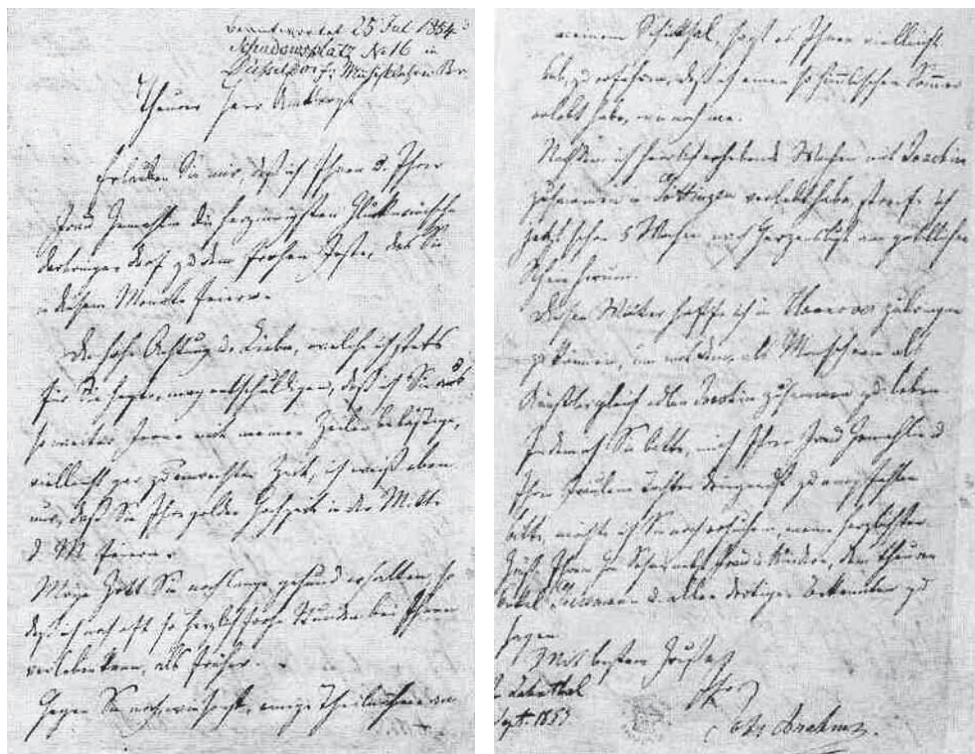 beantwortet 25 Jul 1854
Schadowsplatz No 16 in
Düsseldorf, Musiklehrer Br.
Theurer Herr Amtsvogt
Erlauben Sie mir, daß ich Ihnen u. Ihrer
Frau Gemahlin die herzinnigsten Glückwünsche
darbringen darf zu dem frohen Feste, das Sie
in diesem Monate feiern.
Die hohe Achtung u. Liebe, welche ich stets
für Sie hegte, mag entschuldigen, daß ich Sie aus
so weiter Ferne mit meinen Zeilen belästige,
vielleicht gar zu unrechter Zeit, ich weiß eben
nur, daß Sie Ihre goldne Hochzeit in der Mitte
d. M. feiern.
Möge Gott Sie noch lange gesund erhalten, so
daß ich noch oft so herzlich frohe Stunden bei Ihnen
verleben kann, als früher.
Hegen Sie noch, wie sonst, einige Theilnahme an
meinem Schicksal, so ist es Ihnen vielleicht
lieb, zu erfahren, daß ich einen so himmlischen Sommer
verlebt habe, wie noch nie.
Nachdem ich herrlich erhebende Wochen mit Joachim
zusammen in Göttingen verlebt habe, streife ich
jetzt schon 5 Wochen nach Herzenslust am göttlichen
Rhein herum.
Diesen Winter hoffe ich in Hannover zubringen
zu können, um mit dem, als Menschen als
Künstler gleich edlen Joachim zusammen zu leben.
Indem ich Sie bitte, mich Ihrer Frau Gemahlin u.
Ihrer Fräulein Tochter dringendst zu empfehlen
bitte, möchte ich Sie noch ersuchen, meine herzlichsten
Grüße Ihrem Hr. Sohn nebst Frau u. Kindern, dem theuren
Onkel Giesemann u. allen dortigen Bekannten zu
sagen.
Mit besten Grüßen
Ihr
Sept. 1853
Joh. Brahms.